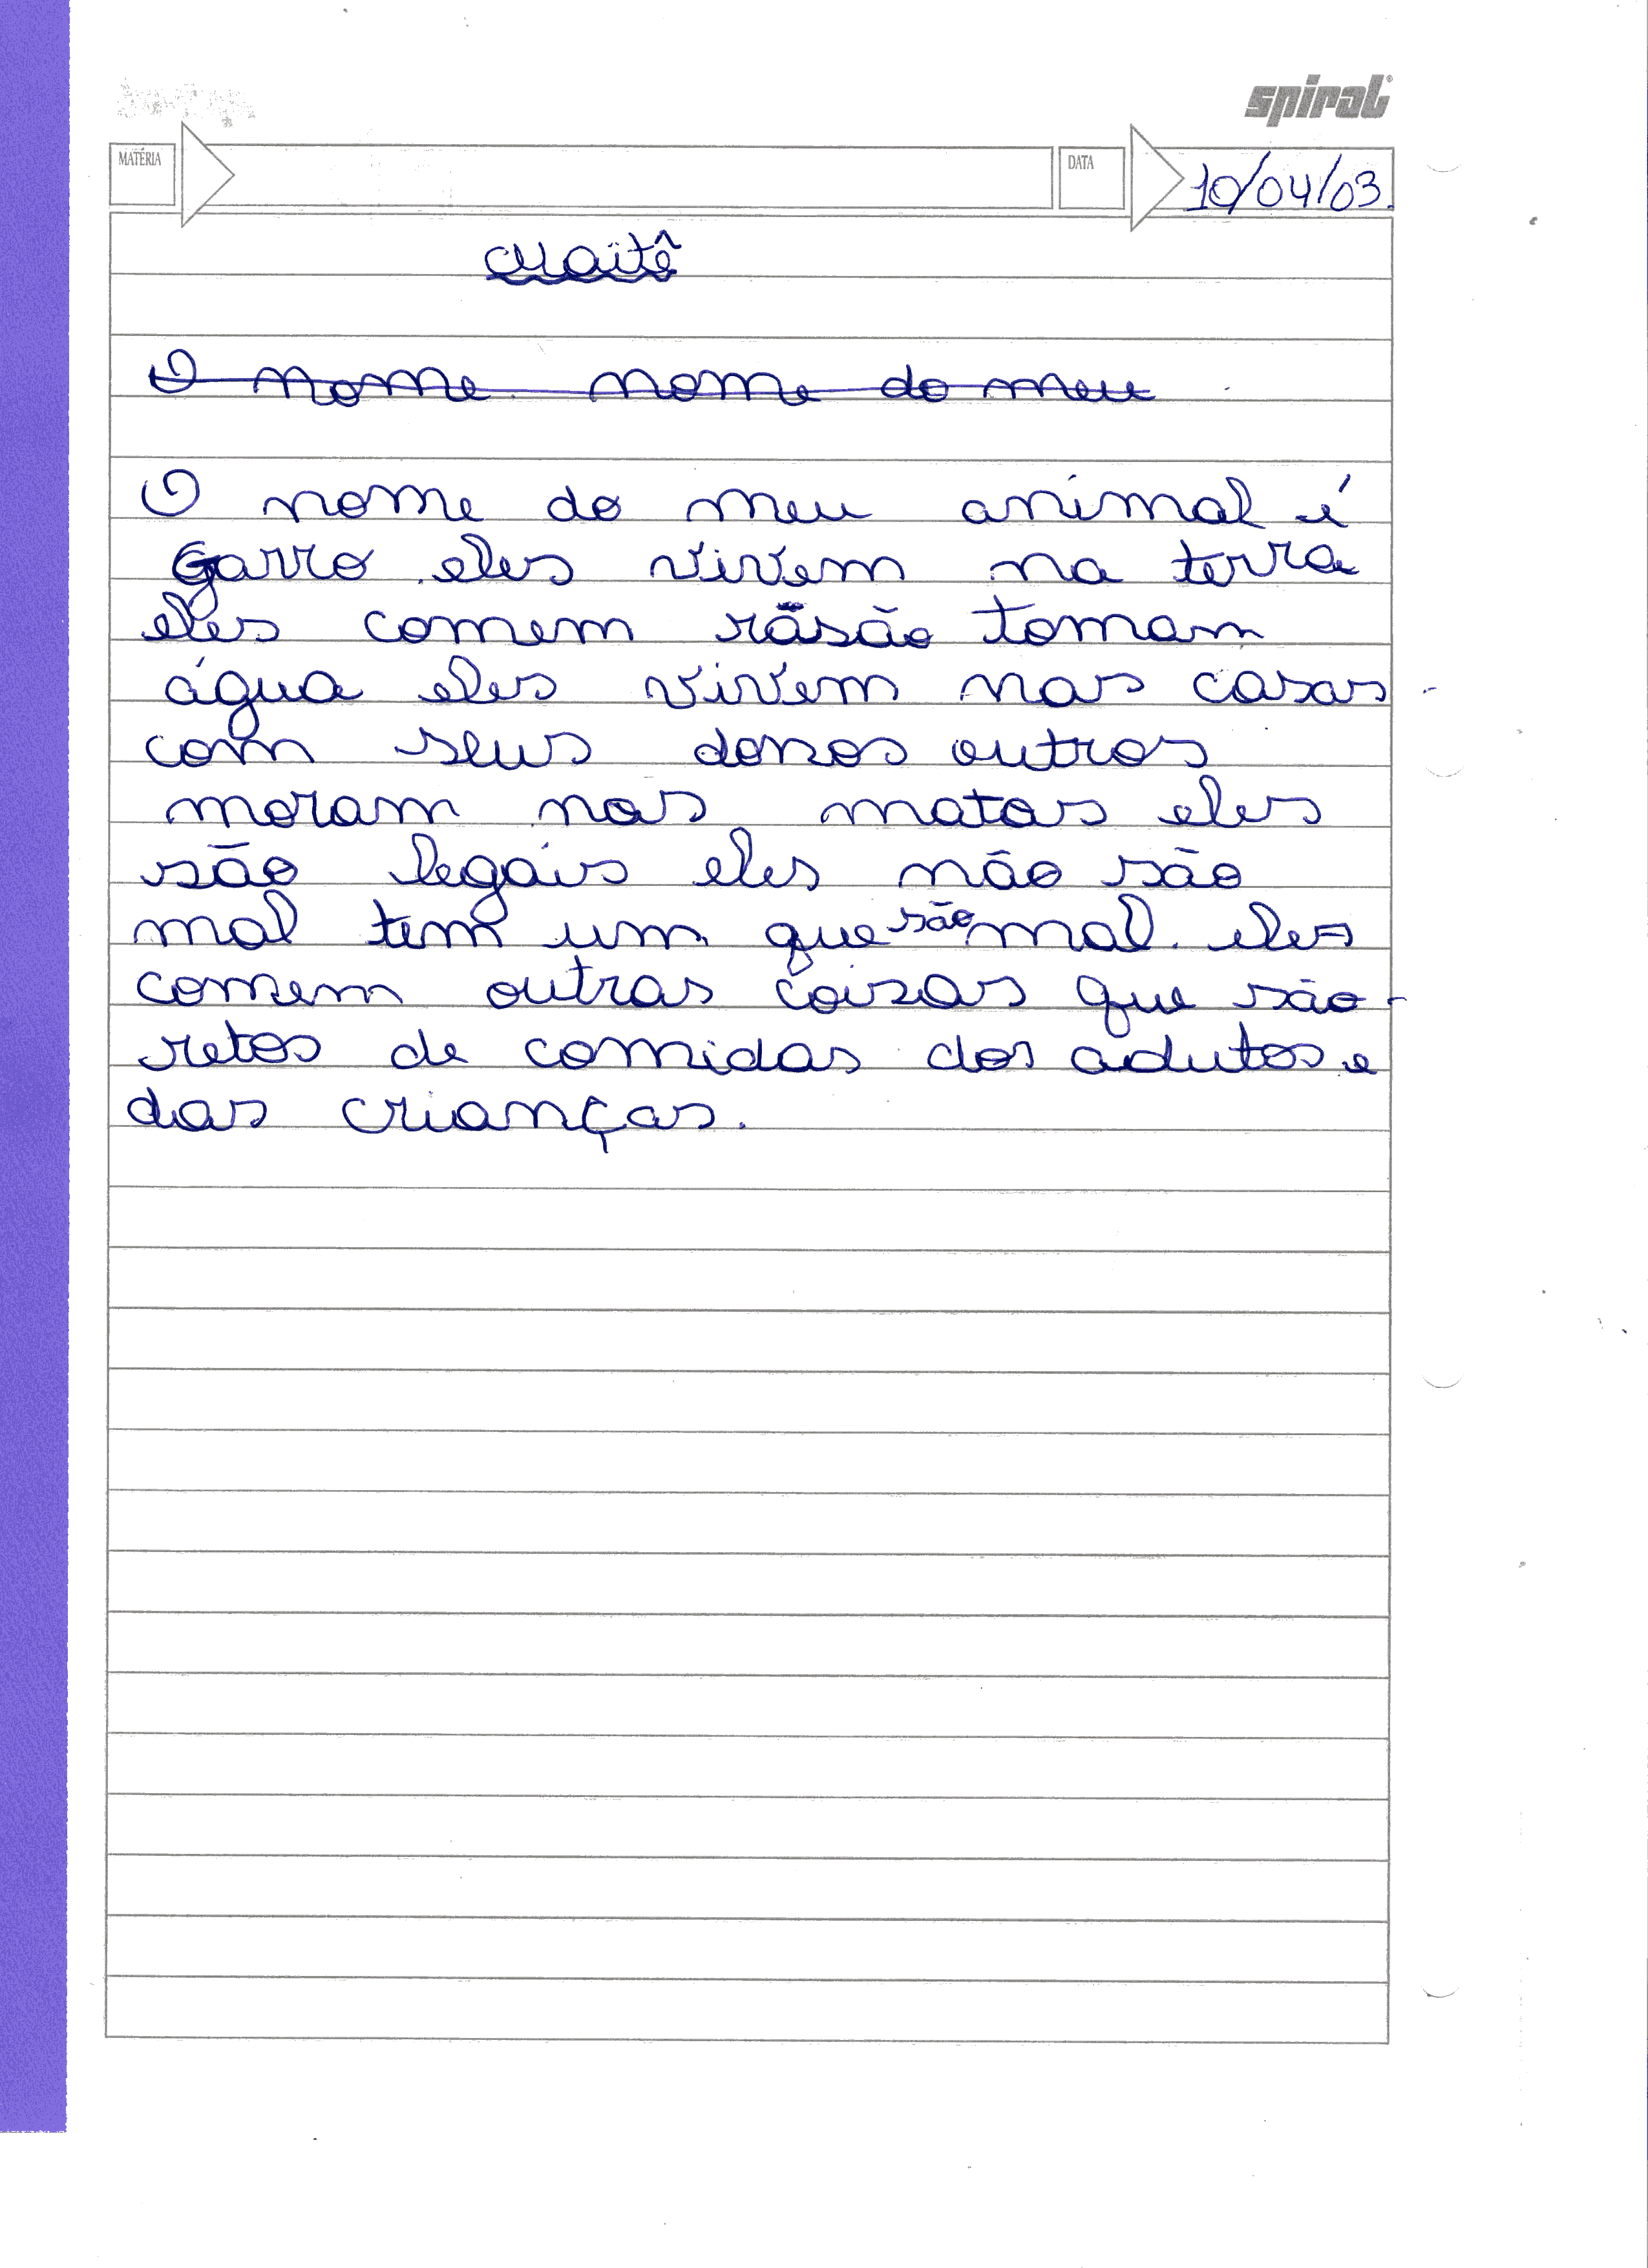 spiral®
MATÉRIA
DATA
10/04/03.
Maitê
O nome nome do meu
O nome do meu animal é
Garro eles vivem na terra
eles comem rãsão tomam
água eles vivem nas casas
com seus donos outros
moram nas matas eles
são legais eles não são
mal tem um que são mal. eles
comem outras coisas que são
retos de comidas dos adutos e
das crianças.